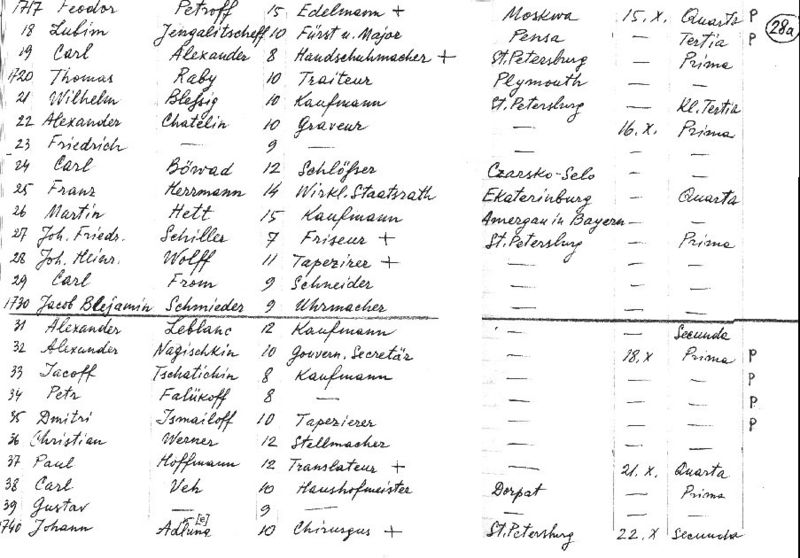 1717 Feodor Petroff 15 Edelmann + Moskwa 15.X. Quarta P 28a
18 Lubim Jengalitscheff 10 Fürst u. Major Pensa — Tertia P
19 Carl Alexander 8 Handschuhmacher + St. Petersburg — Prima
1720 Thomas Raby 10 Traiteur Plymouth — —
21 Wilhelm Bleßig 10 Kaufmann St. Petersburg — Kl. Tertia
22 Alexander Chatelin 10 Graveur — 16.X. Prima
23 Friedrich — 9 — — — —
24 Carl Böwad 12 Schlößser Czarsko-Selo — —
25 Franz Herrmann 14 Wirkl. Staatsrath Ekaterinburg — Quarta
26 Martin Hett 15 Kaufmann Amergau in Bayern — —
27 Joh. Friedr. Schiller 7 Friseur + St. Petersburg — Prima
28 Joh. Heinr. Wolff 11 Tapezirer + — — —
29 Carl From 9 Schneider — — —
1730 Jacob Blejamin Schmieder 9 Uhrmacher — — —
31 Alexander Leblanc 12 Kaufmann — — Secunda
32 Alexander Nagischkin 10 Gouvern. Secretär — 18.X Prima P
33 Jacoff Tschatichin 8 Kaufmann — — — P
34 Petr Falükoff 8 — — — — P
35 Dmitri Ismailoff 10 Tapezierer — — — P
36 Christian Werner 12 Stellmacher — — —
37 Paul Hoffmann 12 Translateur + — 21.X. Quarta
38 Carl Veh 10 Haushofmeister Dorpat — Prima
39 Gustav — 9 — — — —
1740 Johann Adlung [e] 10 Chirurgus + St. Petersburg 22.X Secunda